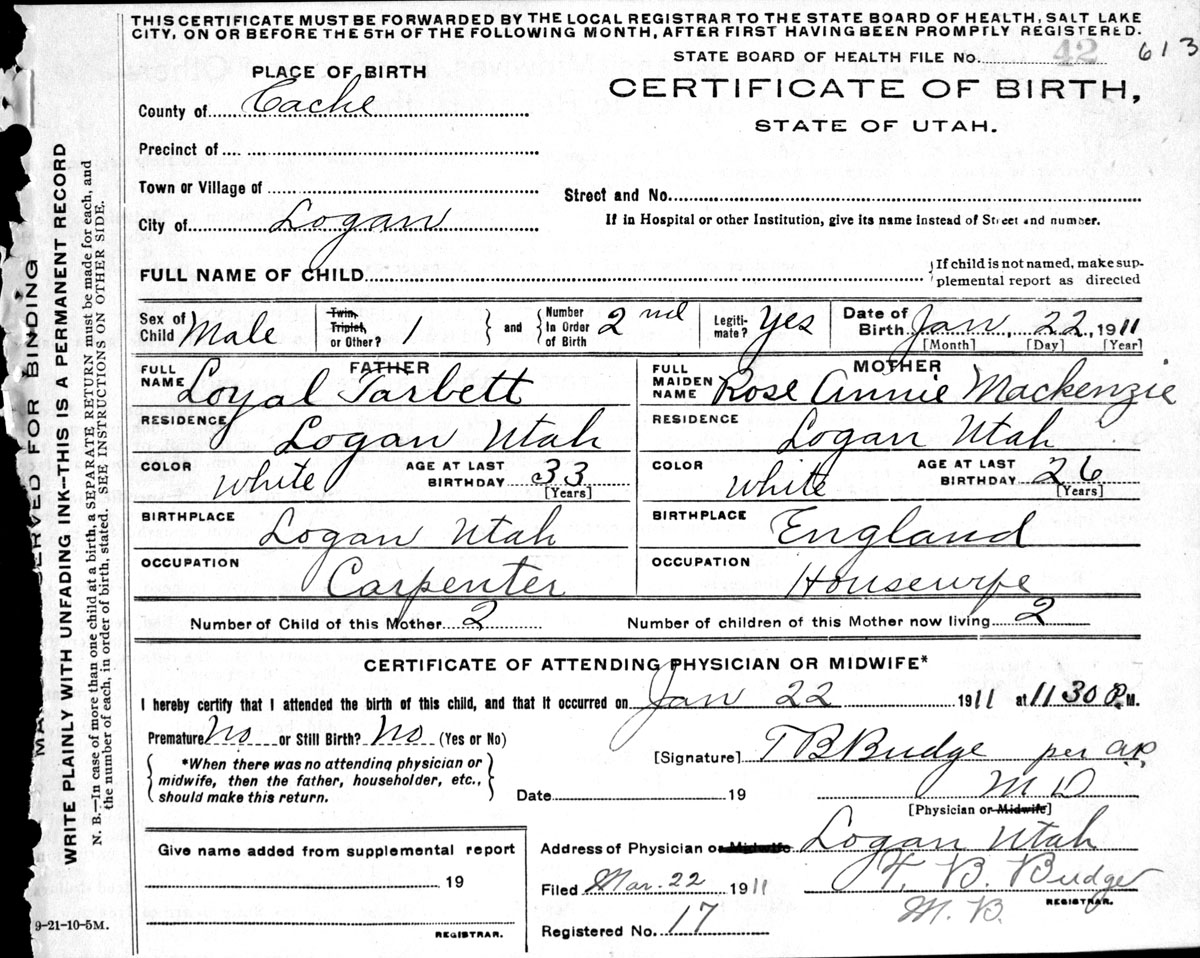 THIS CERTIFICATE MUST BE FORWARDED BY THE LOCAL REGISTRAR TO THE STATE BOARD OF HEALTH, SALT LAKE
CITY, ON OR BEFORE THE 5TH OF THE FOLLOWING MONTH, AFTER FIRST HAVING BEEN PROMPTLY REGISTERED.
STATE BOARD OF HEALTH FILE No. 42 613
PLACE OF BIRTH
CERTIFICATE OF BIRTH,
STATE OF UTAH.
County of Cache
Precinct of
Town or Village of
Street and No.
City of Logan
If in Hospital or other Institution, give its name instead of Street and number.
FULL NAME OF CHILD
If child is not named, make sup-
plemental report as directed
Sex of Child Male
Twin, Triplet, or Other? 1 and Number In Order of Birth 2nd
Legiti-mate? Yes
Date of Birth Jan 22, 1911
[Month] [Day] [Year]
FATHER
FULL NAME Loyal Tarbett
MOTHER
FULL MAIDEN NAME Rose Annie Mackenzie
RESIDENCE Logan Utah
RESIDENCE Logan Utah
COLOR White AGE AT LAST BIRTHDAY 33 [Years]
COLOR White AGE AT LAST BIRTHDAY 26 [Years]
BIRTHPLACE Logan Utah
BIRTHPLACE England
OCCUPATION Carpenter
OCCUPATION Housewife
Number of Child of this Mother 2 Number of children of this Mother now living 2
CERTIFICATE OF ATTENDING PHYSICIAN OR MIDWIFE*
I hereby certify that I attended the birth of this child, and that it occurred on Jan 22 1911 at 11 30 P.M.
Premature No or Still Birth? No (Yes or No)
[Signature] T B Budge per
*When there was no attending physician or
midwife, then the father, householder, etc.,
should make this return.
Date 19 M D
[Physician or Midwife]
Give name added from supplemental report
19
REGISTRAR.
Address of Physician or Midwife Logan Utah
Filed Mar. 22 1911 T. B. Budge
REGISTRAR.
M. B.
Registered No. 17
9-21-10-5M.
SERVED FOR BINDING
WRITE PLAINLY WITH UNFADING INK—THIS IS A PERMANENT RECORD
N. B.—In case of more than one child at a birth, a SEPARATE RETURN must be made for each, and
the number of each, in order of birth, stated. SEE INSTRUCTIONS ON OTHER SIDE.